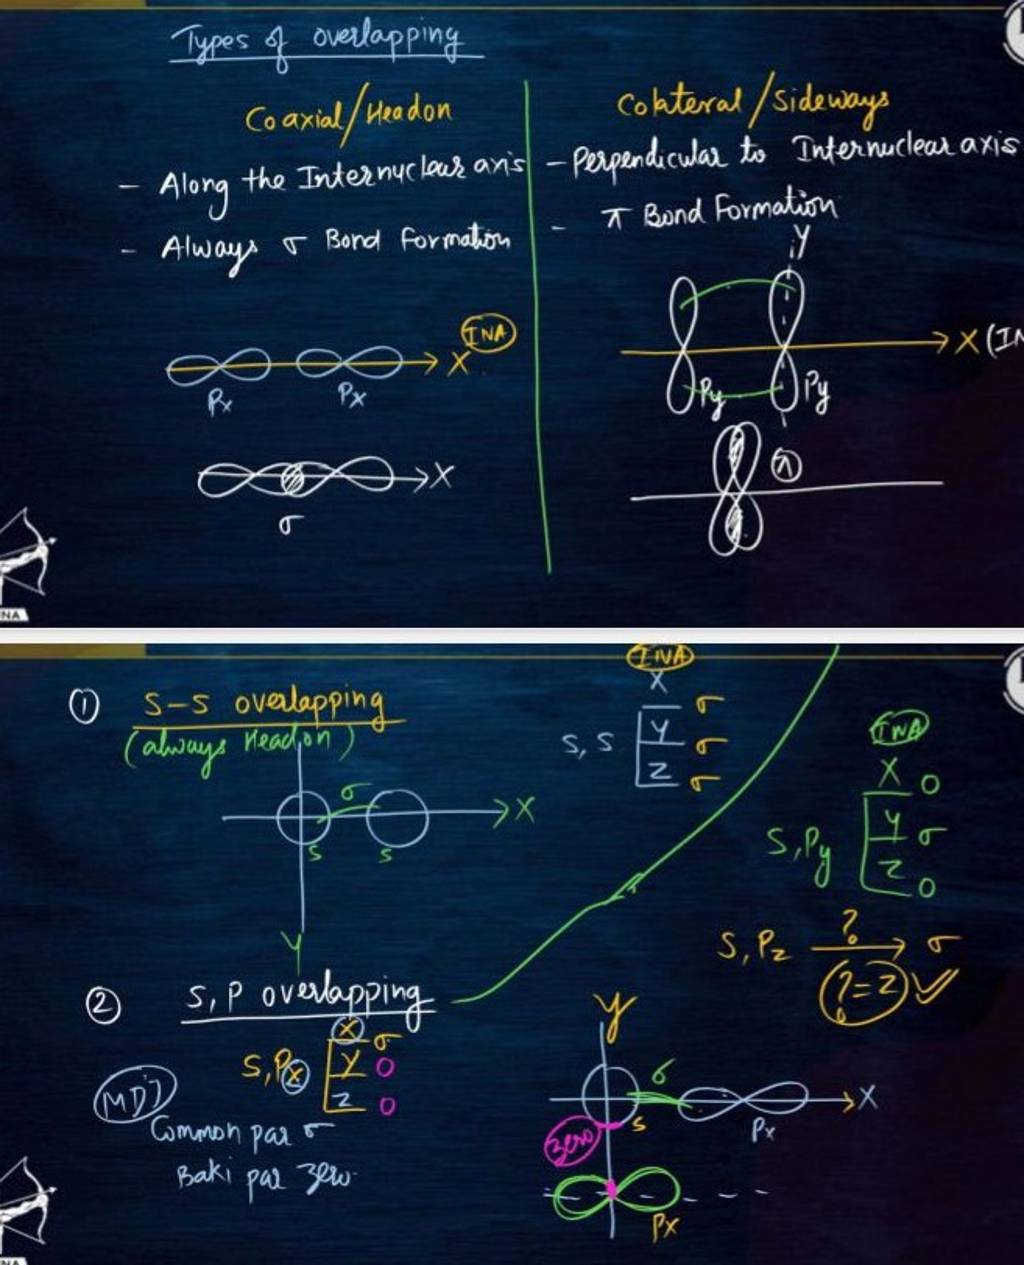 Types of overlapping
Coaxial/Headon
- Along the Internuclear axis
- Always σ Bond Formation
INA
X
Px Px
X
σ
Colateral/Sideways
- Perpendicular to Internuclear axis
- π Bond Formation
Y
X (IN
Py Py
π
NA
① S-S overlapping
(always Headon)
σ
X
S S
Y
INA
X σ
S, S Y σ
Z σ
INA
X 0
S, Py Y σ
Z 0
S, Pz ? σ
?=Z ✓
② S, P overlapping
X σ
S, Px Y 0
Z 0
MDJ
Common par σ
Baki par zero
Y
σ
X
S
Px
zero
Px
NA